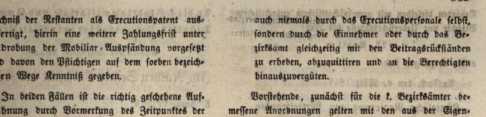 chniß der Restanten als Executionspatent aus-
fertigt, hierin eine weitere Zahlungsfrist unter
drohung der Mobiliar-Auspfändung vorgesetzt
d davon den Pflichtigen auf dem soeben bezeich-
en Wege Kenntniß gegeben.
In beiden Fällen ist die richtig geschehene Auf-
hnung durch Vormerkung des Zeitpunktes der
auch niemals durch das Executionspersonale selbst,
sondern durch die Einnehmer oder durch das Be-
zirksamt gleichzeitig mit den Beitragsrückständen
zu erheben, abzuquittiren und an die Berechtigten
hinauszuvergüten.
Vorstehende, zunächst für die k. Bezirksämter be-
messene Anordnungen gelten mit den aus der Eigen-